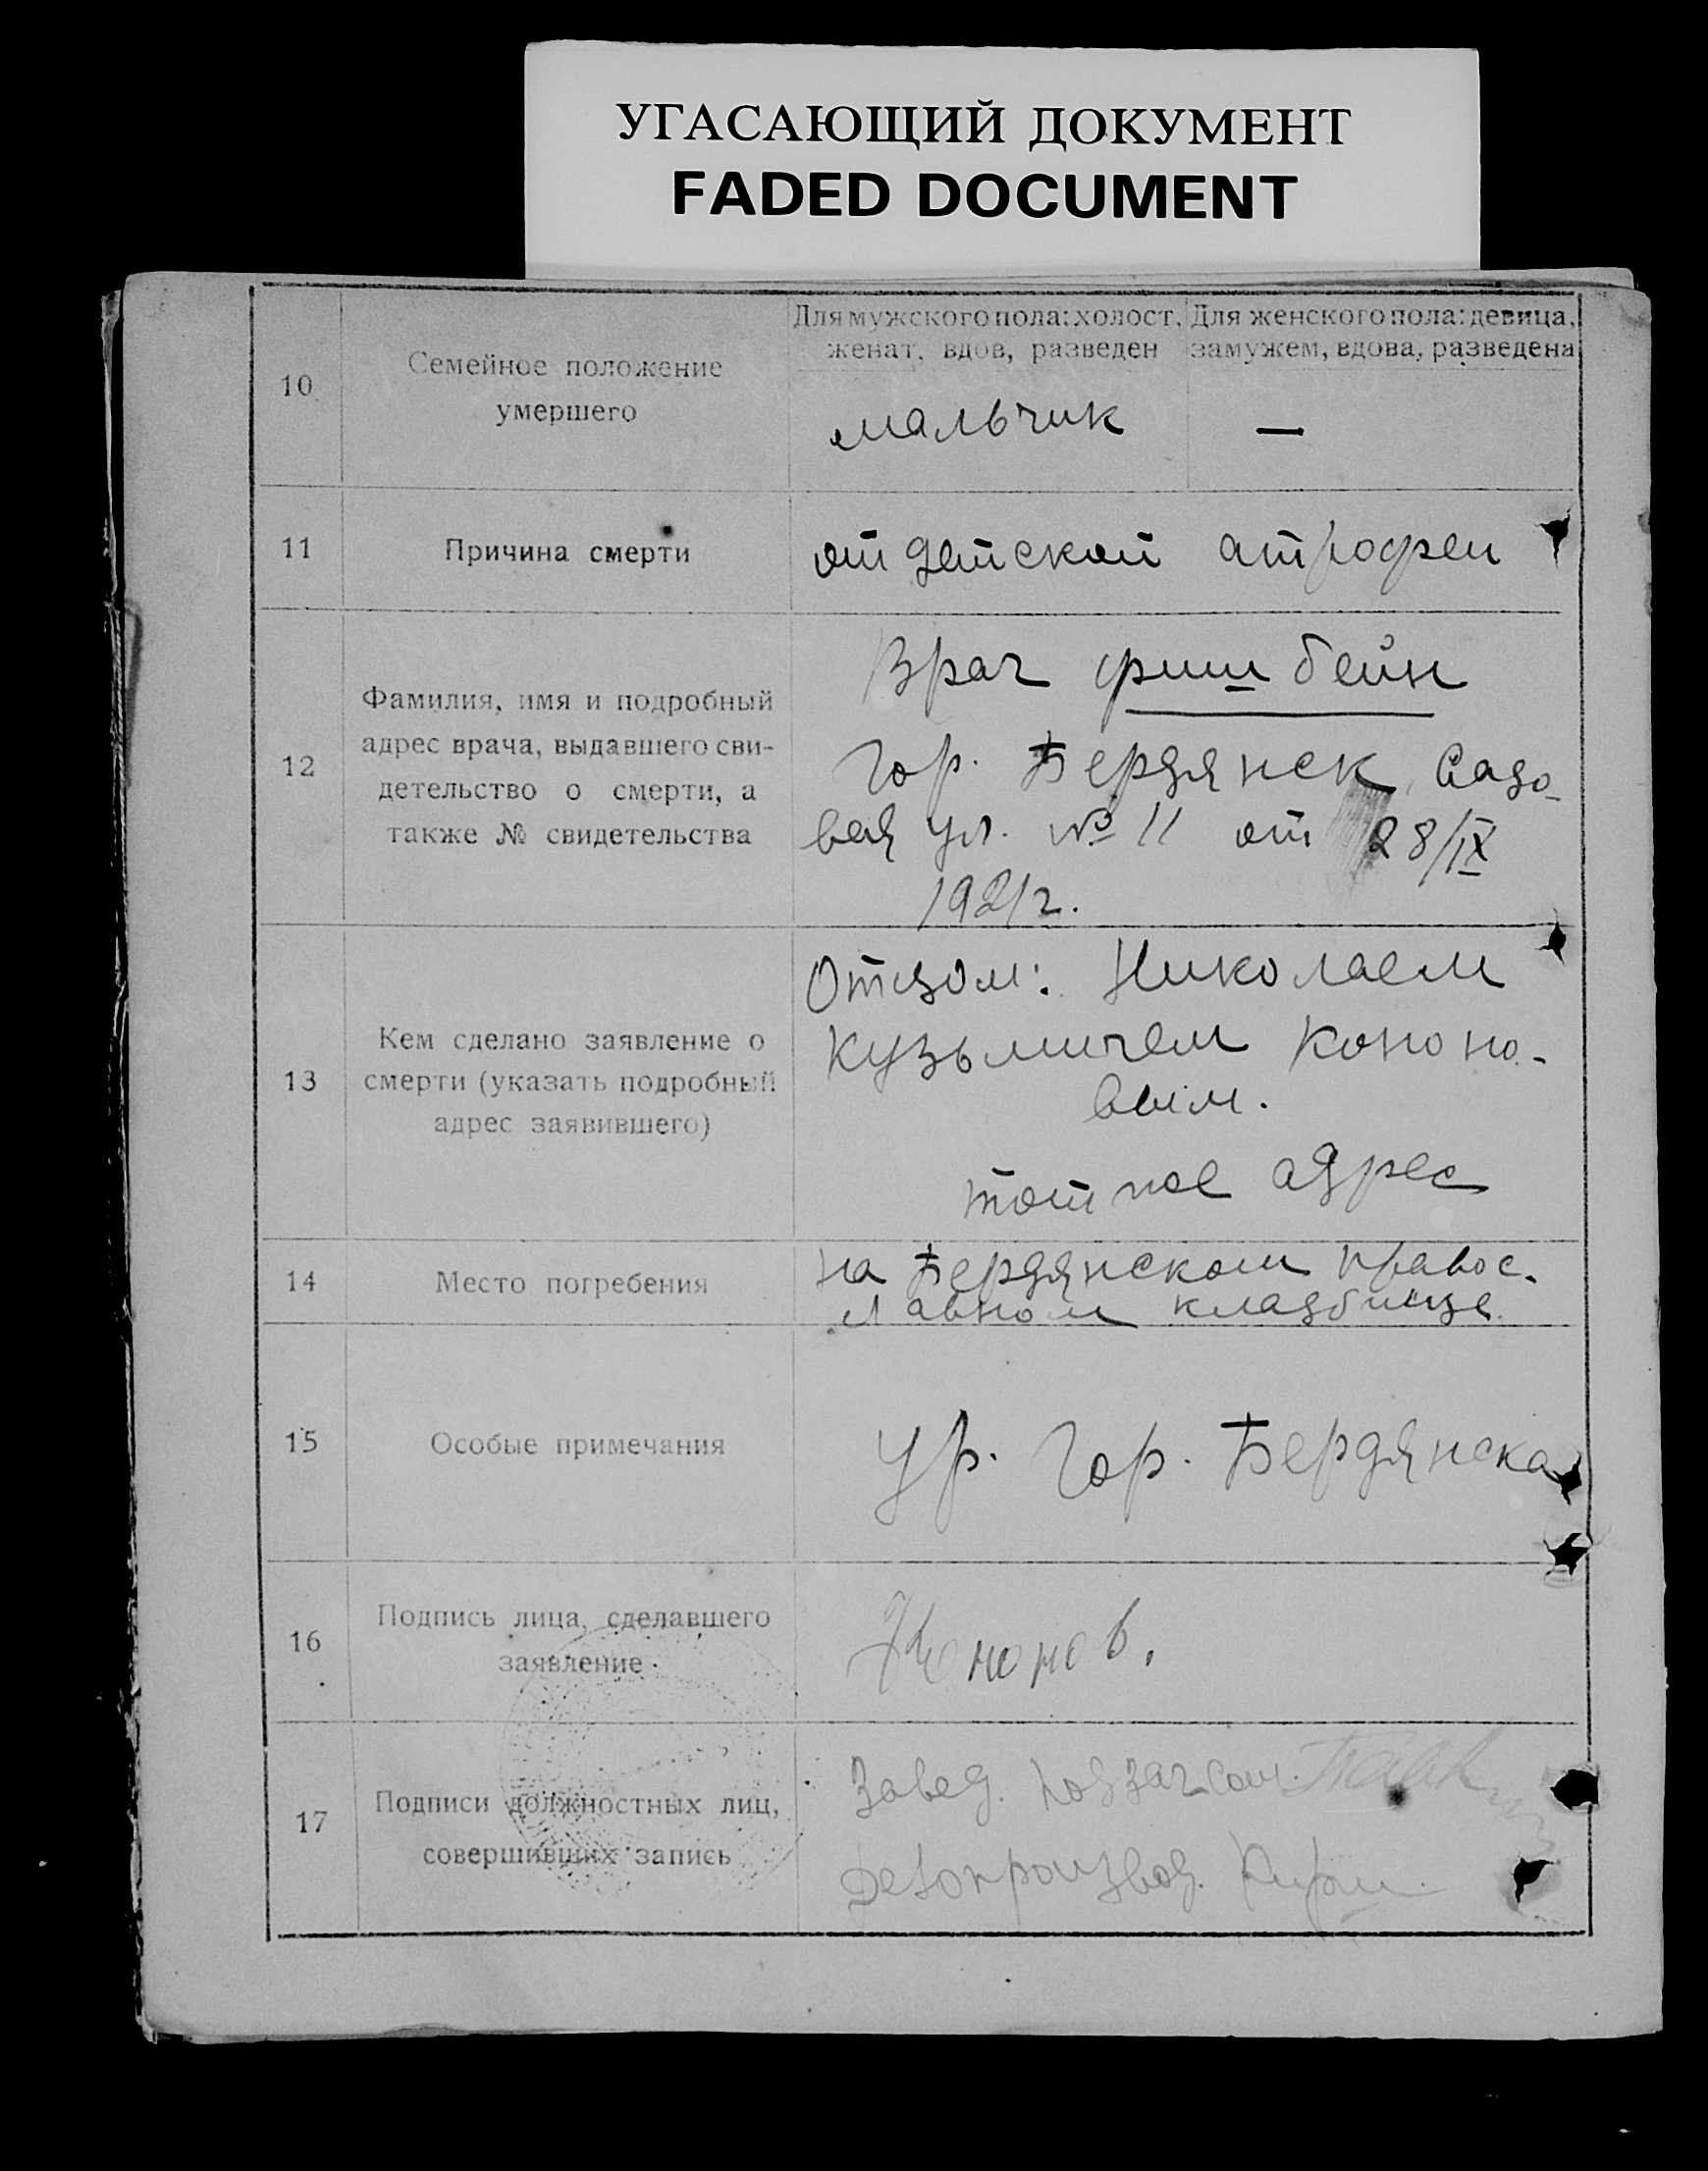 УГАСАЮЩИЙ ДОКУМЕНТ
FADED DOCUMENT
10
Семейное положение
умершего
Для мужского пола: холост,
женат, вдов, разведен
Для женского пола: девица,
замужем, вдова, разведена
мальчик
—
11
Причина смерти
от детской атрофеи
12
Фамилия, имя и подробный
адрес врача, выдавшего сви-
детельство о смерти, а
также № свидетельства
Врач Фишбейн
Гор. Бердянск, Садо-
вая ул. № 11 от 28/IX
1921 г.
13
Кем сделано заявление о
смерти (указать подробный
адрес заявившего)
Отцом: Николаем
Кузьмичем Кононо-
вым.
тот же адрес
14
Место погребения
на Бердянском правос-
лавном кладбище.
15
Особые примечания
Ур. Гор. Бердянска
16
Подпись лица, сделавшего
заявление.
Кононов.
17
Подписи должностных лиц,
совершивших запись
Завед.
Делопроизвод.